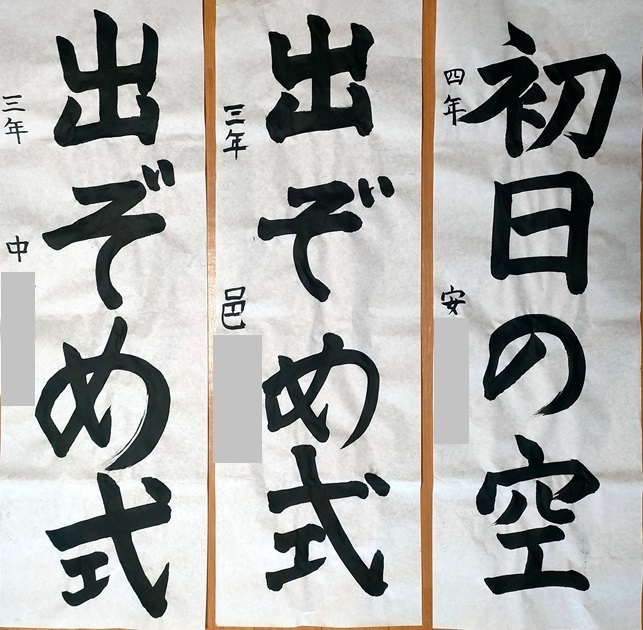 初日の空
四年 安
出ぞめ式
三年 邑
出ぞめ式
三年 中